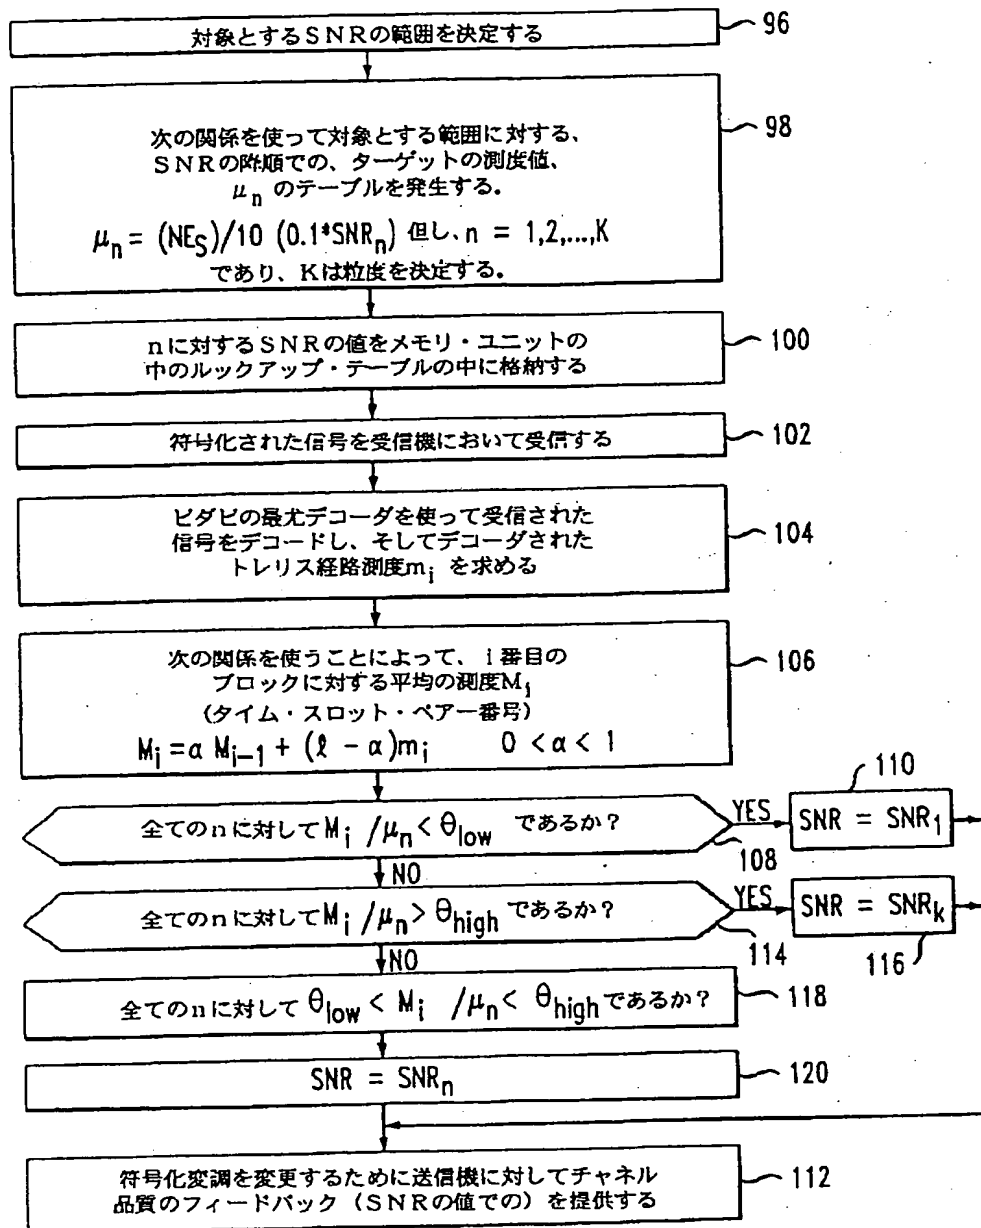 対象とするSNRの範囲を決定する
96
次の関係を使って対象とする範囲に対する、
SNRの降順での、ターゲットの測度値、
μn のテーブルを発生する。
μn = (NES)/10 (0.1*SNRn) 但し、n = 1,2,...,K
であり、Kは粒度を決定する。
98
nに対するSNRの値をメモリ・ユニットの
中のルックアップ・テーブルの中に格納する
100
符号化された信号を受信機において受信する
102
ビタビの最尤デコーダを使って受信された
信号をデコードし、そしてデコーダされた
トレリス経路測度mi を求める
104
次の関係を使うことによって、i番目の
ブロックに対する平均の測度Mi
(タイム・スロット・ペアー番号)
Mi = α Mi-1 + (ℓ - α)mi 0 < α < 1
106
全てのnに対してMi /μn < θlow であるか?
YES
108
SNR = SNR1
110
NO
全てのnに対してMi /μn > θhigh であるか?
YES
114
SNR = SNRk
116
NO
全てのnに対して θlow < Mi /μn < θhigh であるか?
118
SNR = SNRn
120
符号化変調を変更するために送信機に対してチャネル
品質のフィードバック(SNRの値での)を提供する
112